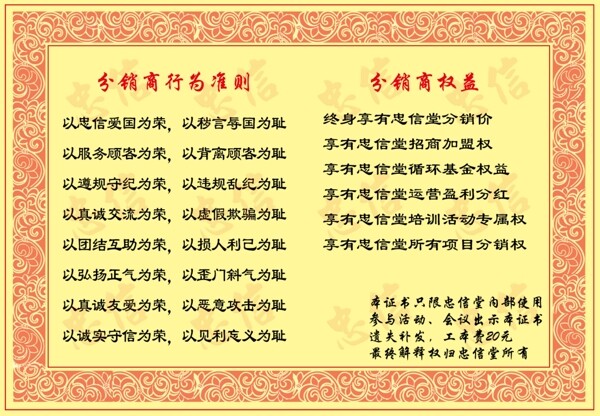 分销商行为准则
以忠信爱国为荣，以秽言辱国为耻
以服务顾客为荣，以背离顾客为耻
以遵规守纪为荣，以违规乱纪为耻
以真诚交流为荣，以虚假欺骗为耻
以团结互助为荣，以损人利己为耻
以弘扬正气为荣，以歪门斜气为耻
以真诚友爱为荣，以恶意攻击为耻
以诚实守信为荣，以见利忘义为耻
分销商权益
终身享有忠信堂分销价
享有忠信堂招商加盟权
享有忠信堂循环基金权益
享有忠信堂运营盈利分红
享有忠信堂培训活动专属权
享有忠信堂所有项目分销权
本证书只限忠信堂内部使用
参与活动、会议出示本证书
遗失补发，工本费20元
最终解释权归忠信堂所有
忠信
忠信
忠信
忠信
忠信
忠信